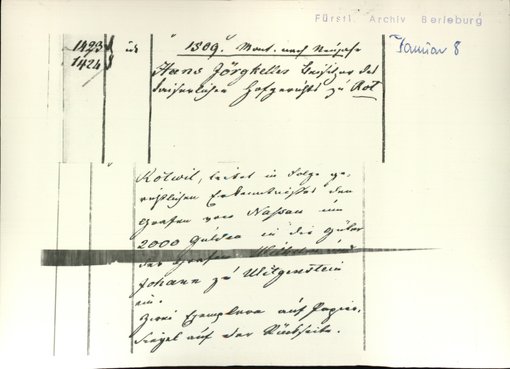 Fürstl. Archiv Berleburg
Januar 8
1423
1424
1509. Mont. nach Neujahr
Hans Jörgkeller Beisitzer des
kaiserlichen Hofgerichts zu Rot
Rotwil, leitet in Folge ge-
richtlichen Erkenntnisses den
Grafen von Nassau um
2000 Gulden in die Güter
der Grafen Wilhelm und
Johann zu Witgenstein
ein.
Zwei Exemplare auf Papier,
Siegel auf der Rückseite.